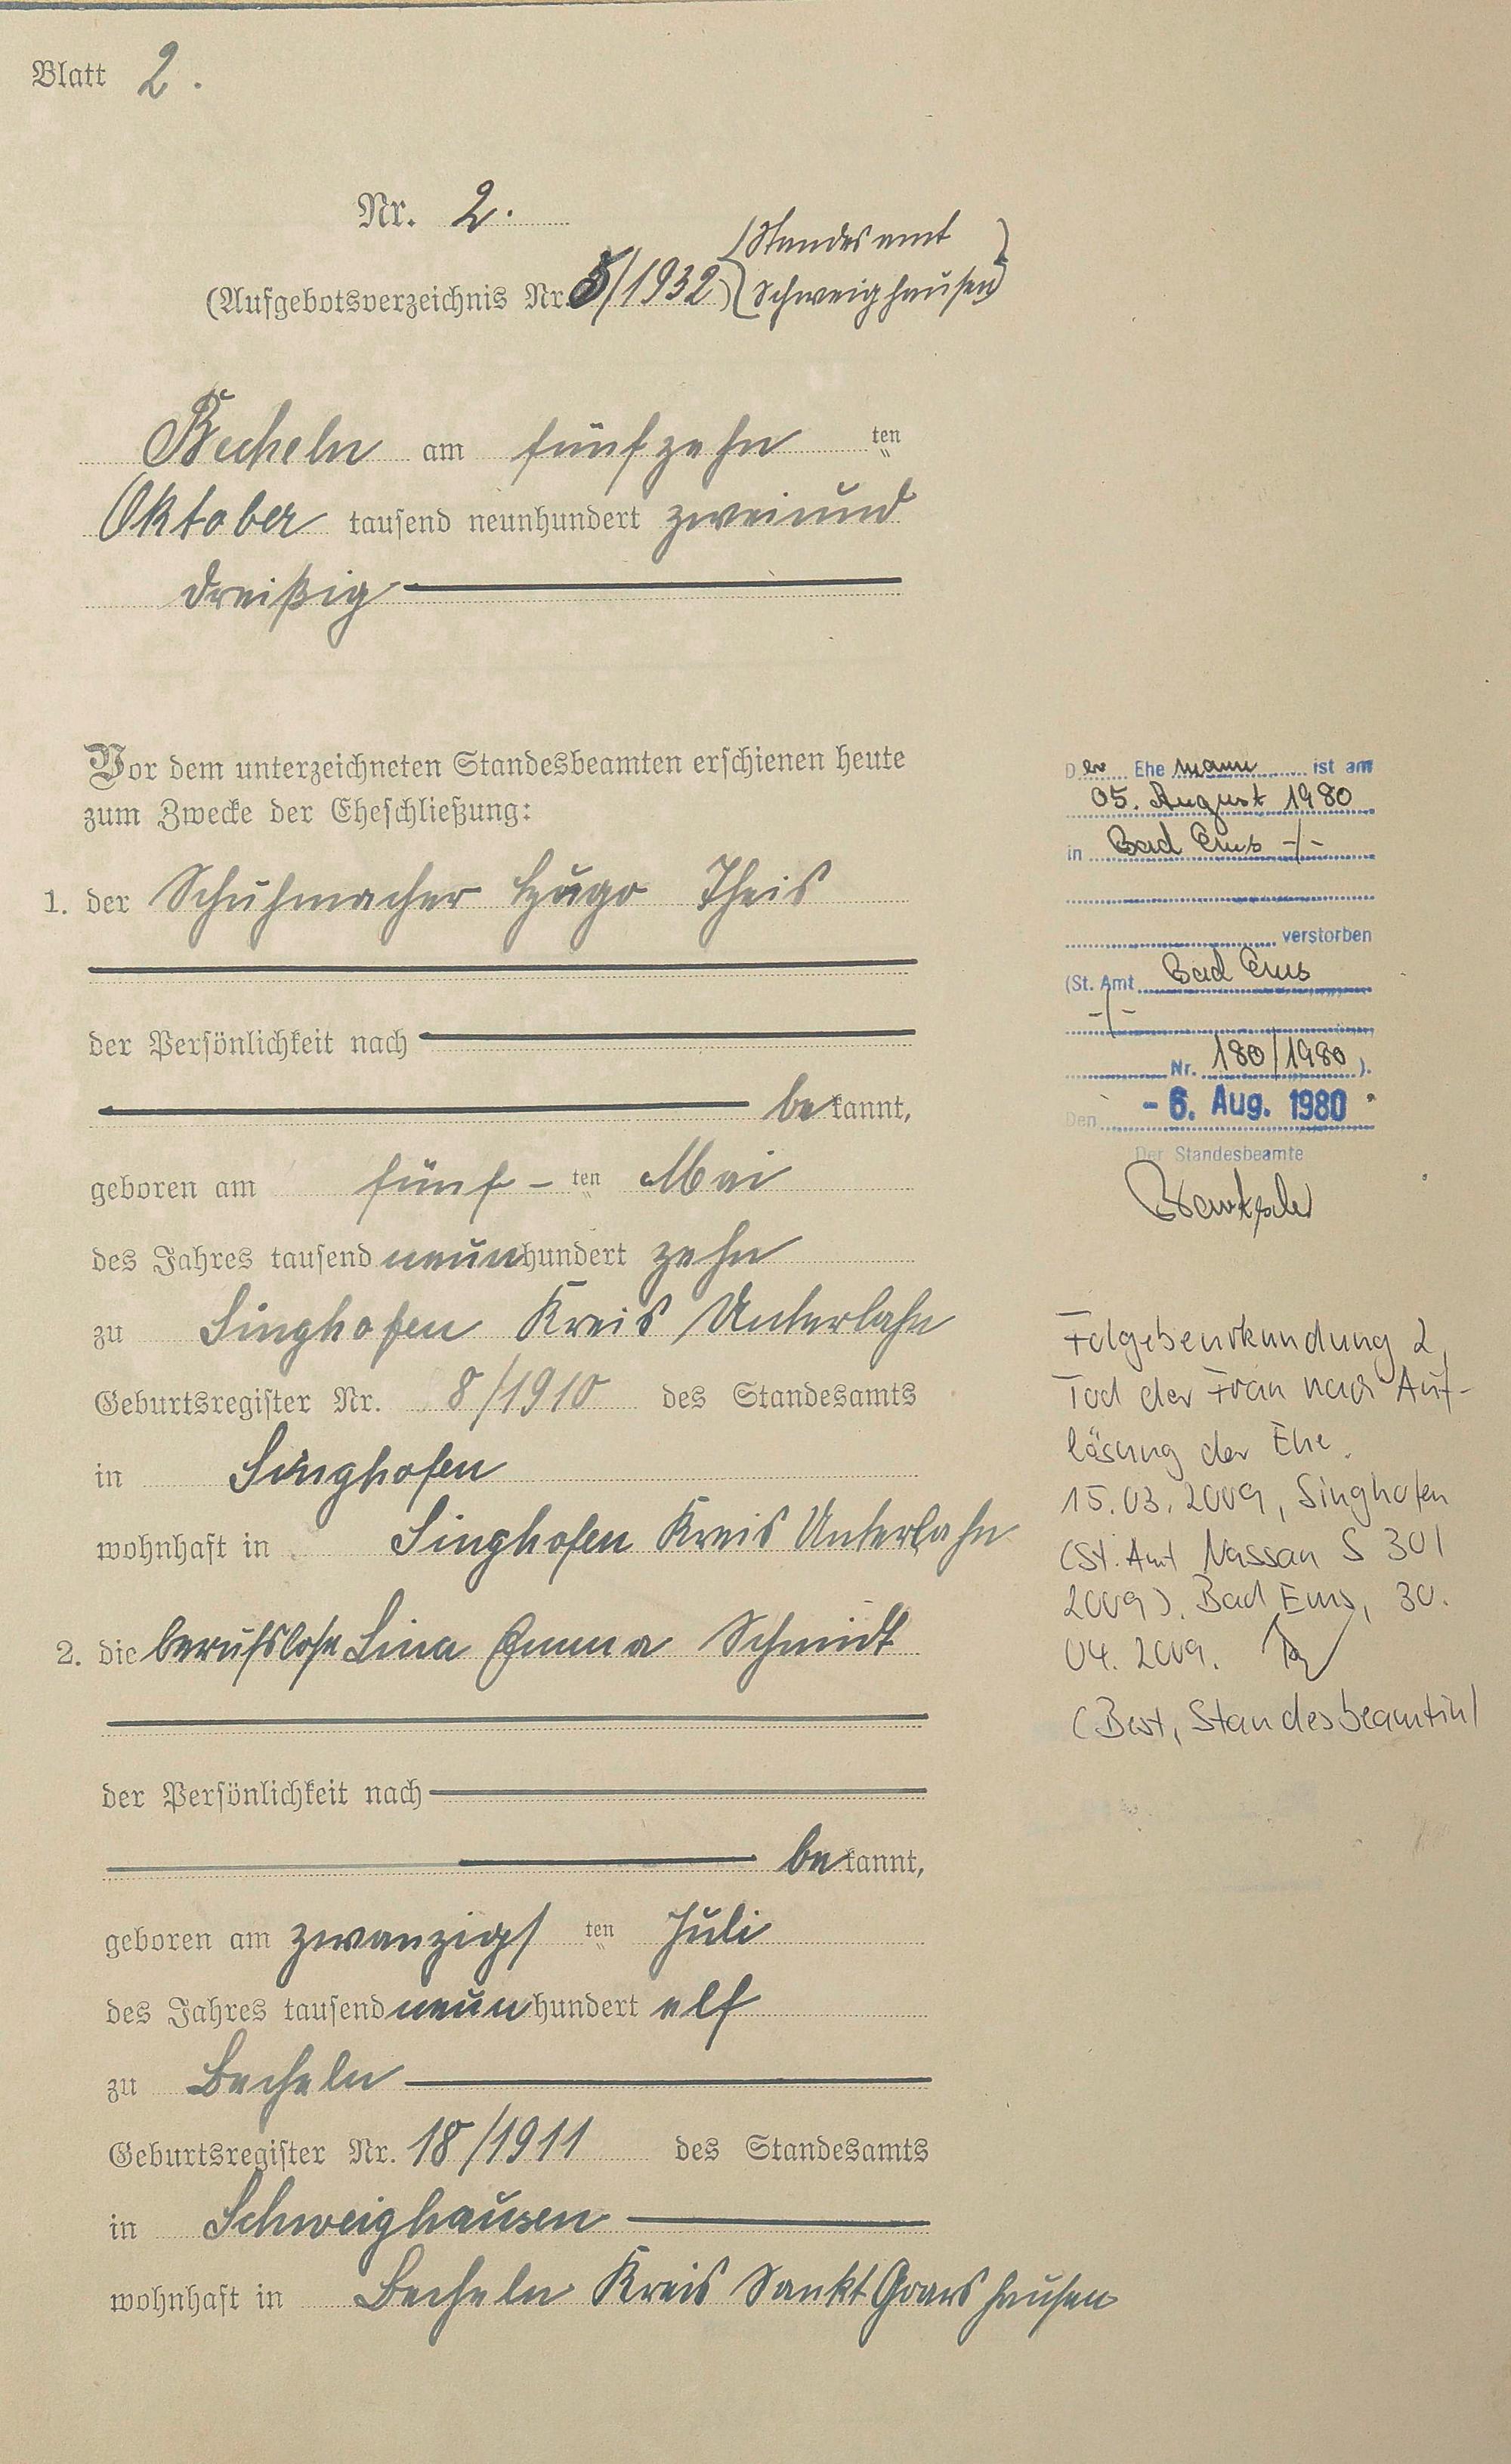 Blatt 2.
Nr. 2.
(Standesamt
(Aufgebotsverzeichnis Nr. 5/1932) Schweighausen)
Becheln am fünfzehn ten
Oktober tausend neunhundert zweiund
dreißig
Vor dem unterzeichneten Standesbeamten erschienen heute
zum Zwecke der Eheschließung:
1. der Schuhmacher Hugo Theis
der Persönlichkeit nach
bekannt,
geboren am fünf - ten Mai
des Jahres tausend neunhundert zehn
zu Singhofen Kreis Unterlahn
Geburtsregister Nr. 8/1910 des Standesamts
in Singhofen
wohnhaft in Singhofen Kreis Unterlahn
2. die berufslose Lina Emma Schmidt
der Persönlichkeit nach
bekannt,
geboren am zwanzigs ten Juli
des Jahres tausend neunhundert elf
zu Becheln
Geburtsregister Nr. 18/1911 des Standesamts
in Schweighausen
wohnhaft in Becheln Kreis Sankt Goarshausen
Der Ehemann ist am
05. August 1980
in Bad Ems -/-
verstorben
(St. Amt Bad Ems
-/-
Nr. 180/1980).
Den - 6. Aug. 1980
Der Standesbeamte
Folgebeurkundung 2,
Tod der Frau nach Auf-
lösung der Ehe.
15.03.2009, Singhofen
(St. Amt Nassau S 30/
2009). Bad Ems, 30.
04. 2009.
(Best, Standesbeamtin)